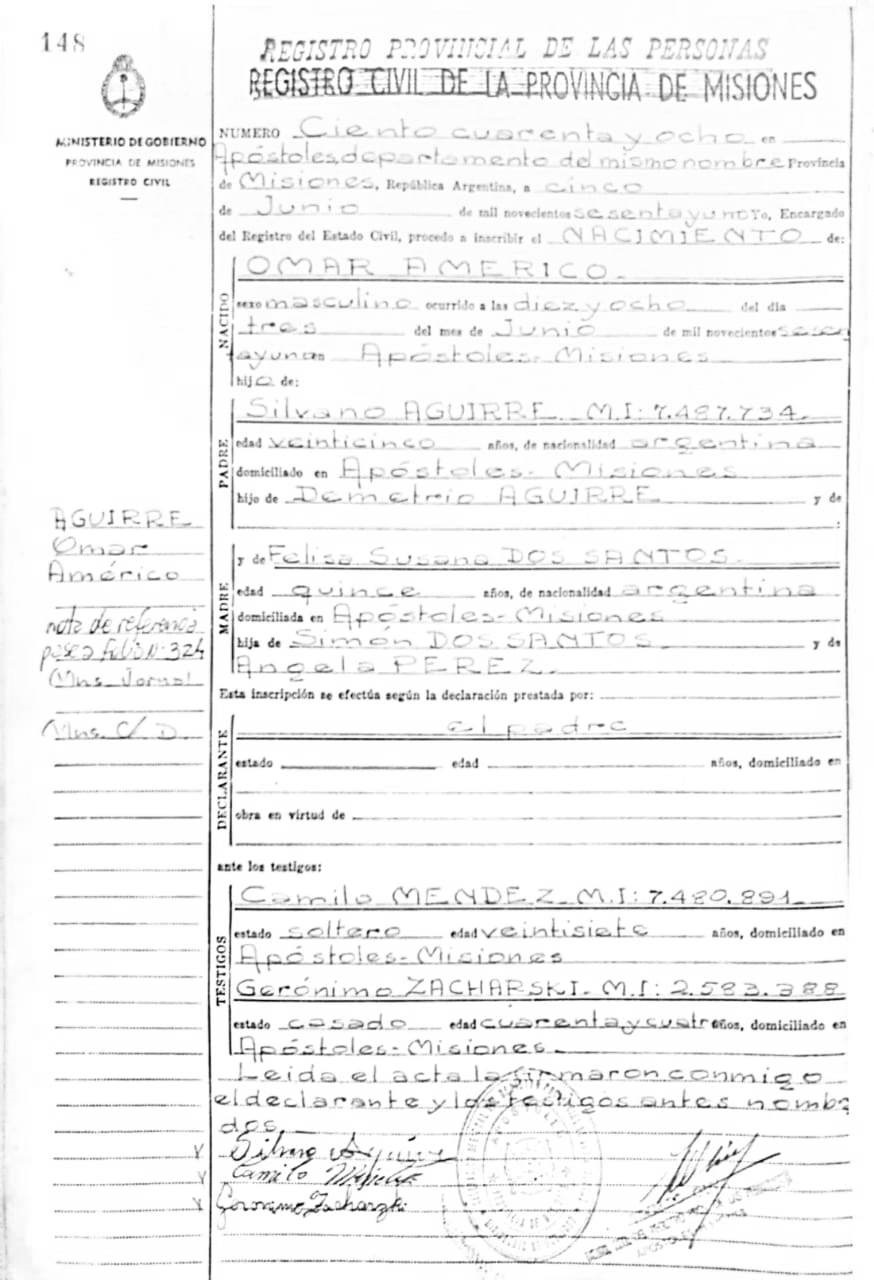 148
REGISTRO PROVINCIAL DE LAS PERSONAS
REGISTRO CIVIL DE LA PROVINCIA DE MISIONES
MINISTERIO DE GOBIERNO
PROVINCIA DE MISIONES
REGISTRO CIVIL
NUMERO Ciento cuarenta y ocho en
Apóstoles departamento del mismo nombre Provincia
de Misiones, República Argentina, a cinco
de Junio de mil novecientos sesentayuno Yo, Encargado
del Registro del Estado Civil, procedo a inscribir el NACIMIENTO de:
NACIDO
OMAR AMERICO.
sexo masculino ocurrido a las diez y ocho del día
tres del mes de Junio de mil novecientos sesen
tayuno en Apóstoles-Misiones
hijo de:
PADRE
Silvano AGUIRRE M.I: 7.487.734.
edad veinticinco años, de nacionalidad argentina
domiciliado en Apóstoles-Misiones
hijo de Demetrio AGUIRRE y de
:
AGUIRRE
Omar
Américo
nota de referencia
pasea folio Nº 324
MADRE
y de Felisa Susana DOS SANTOS.
edad quince años, de nacionalidad argentina
domiciliada en Apóstoles-Misiones
hija de Simón DOS SANTOS y de
Angela PEREZ.
Esta inscripción se efectúa según la declaración prestada por:
DECLARANTE
el padre
estado edad años, domiciliado en
obra en virtud de
ante los testigos:
TESTIGOS
Camilo MENDEZ M.I: 7.480.891
estado soltero edad veintisiete años, domiciliado en
Apóstoles-Misiones
Gerónimo ZACHARSKI. M.I: 2.583.388
estado casado edad cuarentaycuatro años, domiciliado en
Apóstoles-Misiones.
Leida el acta la firmaron conmigo
el declarante y los testigos antes nombra
dos
Silvano Aguirre
Camilo Mendez
Geronimo Zacharski